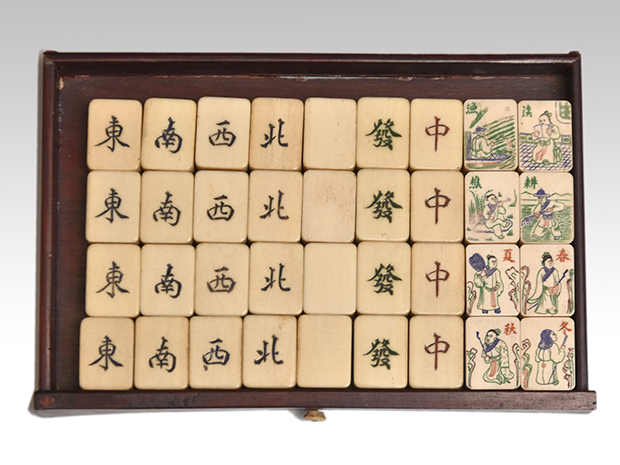 東 南 西 北 發 中 漁 读
東 南 西 北 發 中 樵 耕
東 南 西 北 發 中 夏 春
東 南 西 北 發 中 秋 冬